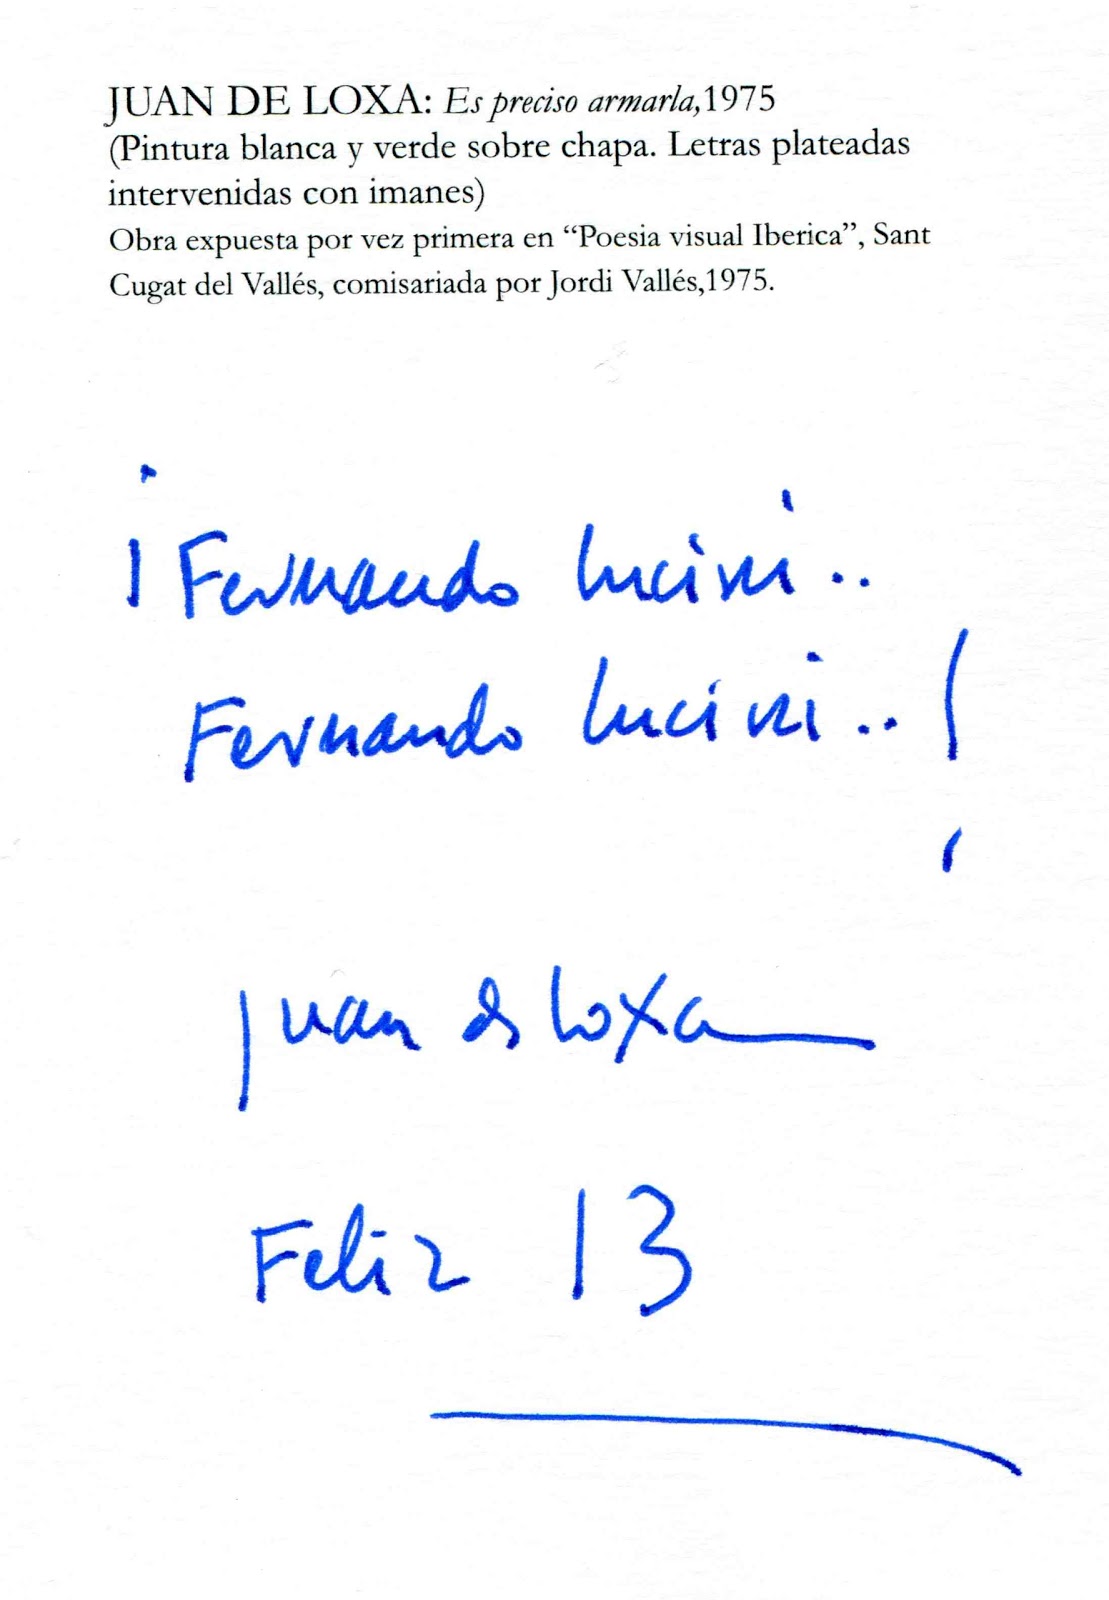 JUAN DE LOXA: Es preciso armarla,1975
(Pintura blanca y verde sobre chapa. Letras plateadas
intervenidas con imanes)
Obra expuesta por vez primera en “Poesia visual Iberica”, Sant
Cugat del Vallés, comisariada por Jordi Vallés,1975.
¡Fernando Lucini..
Fernando Lucini..!
Juan de Loxa
Feliz 13